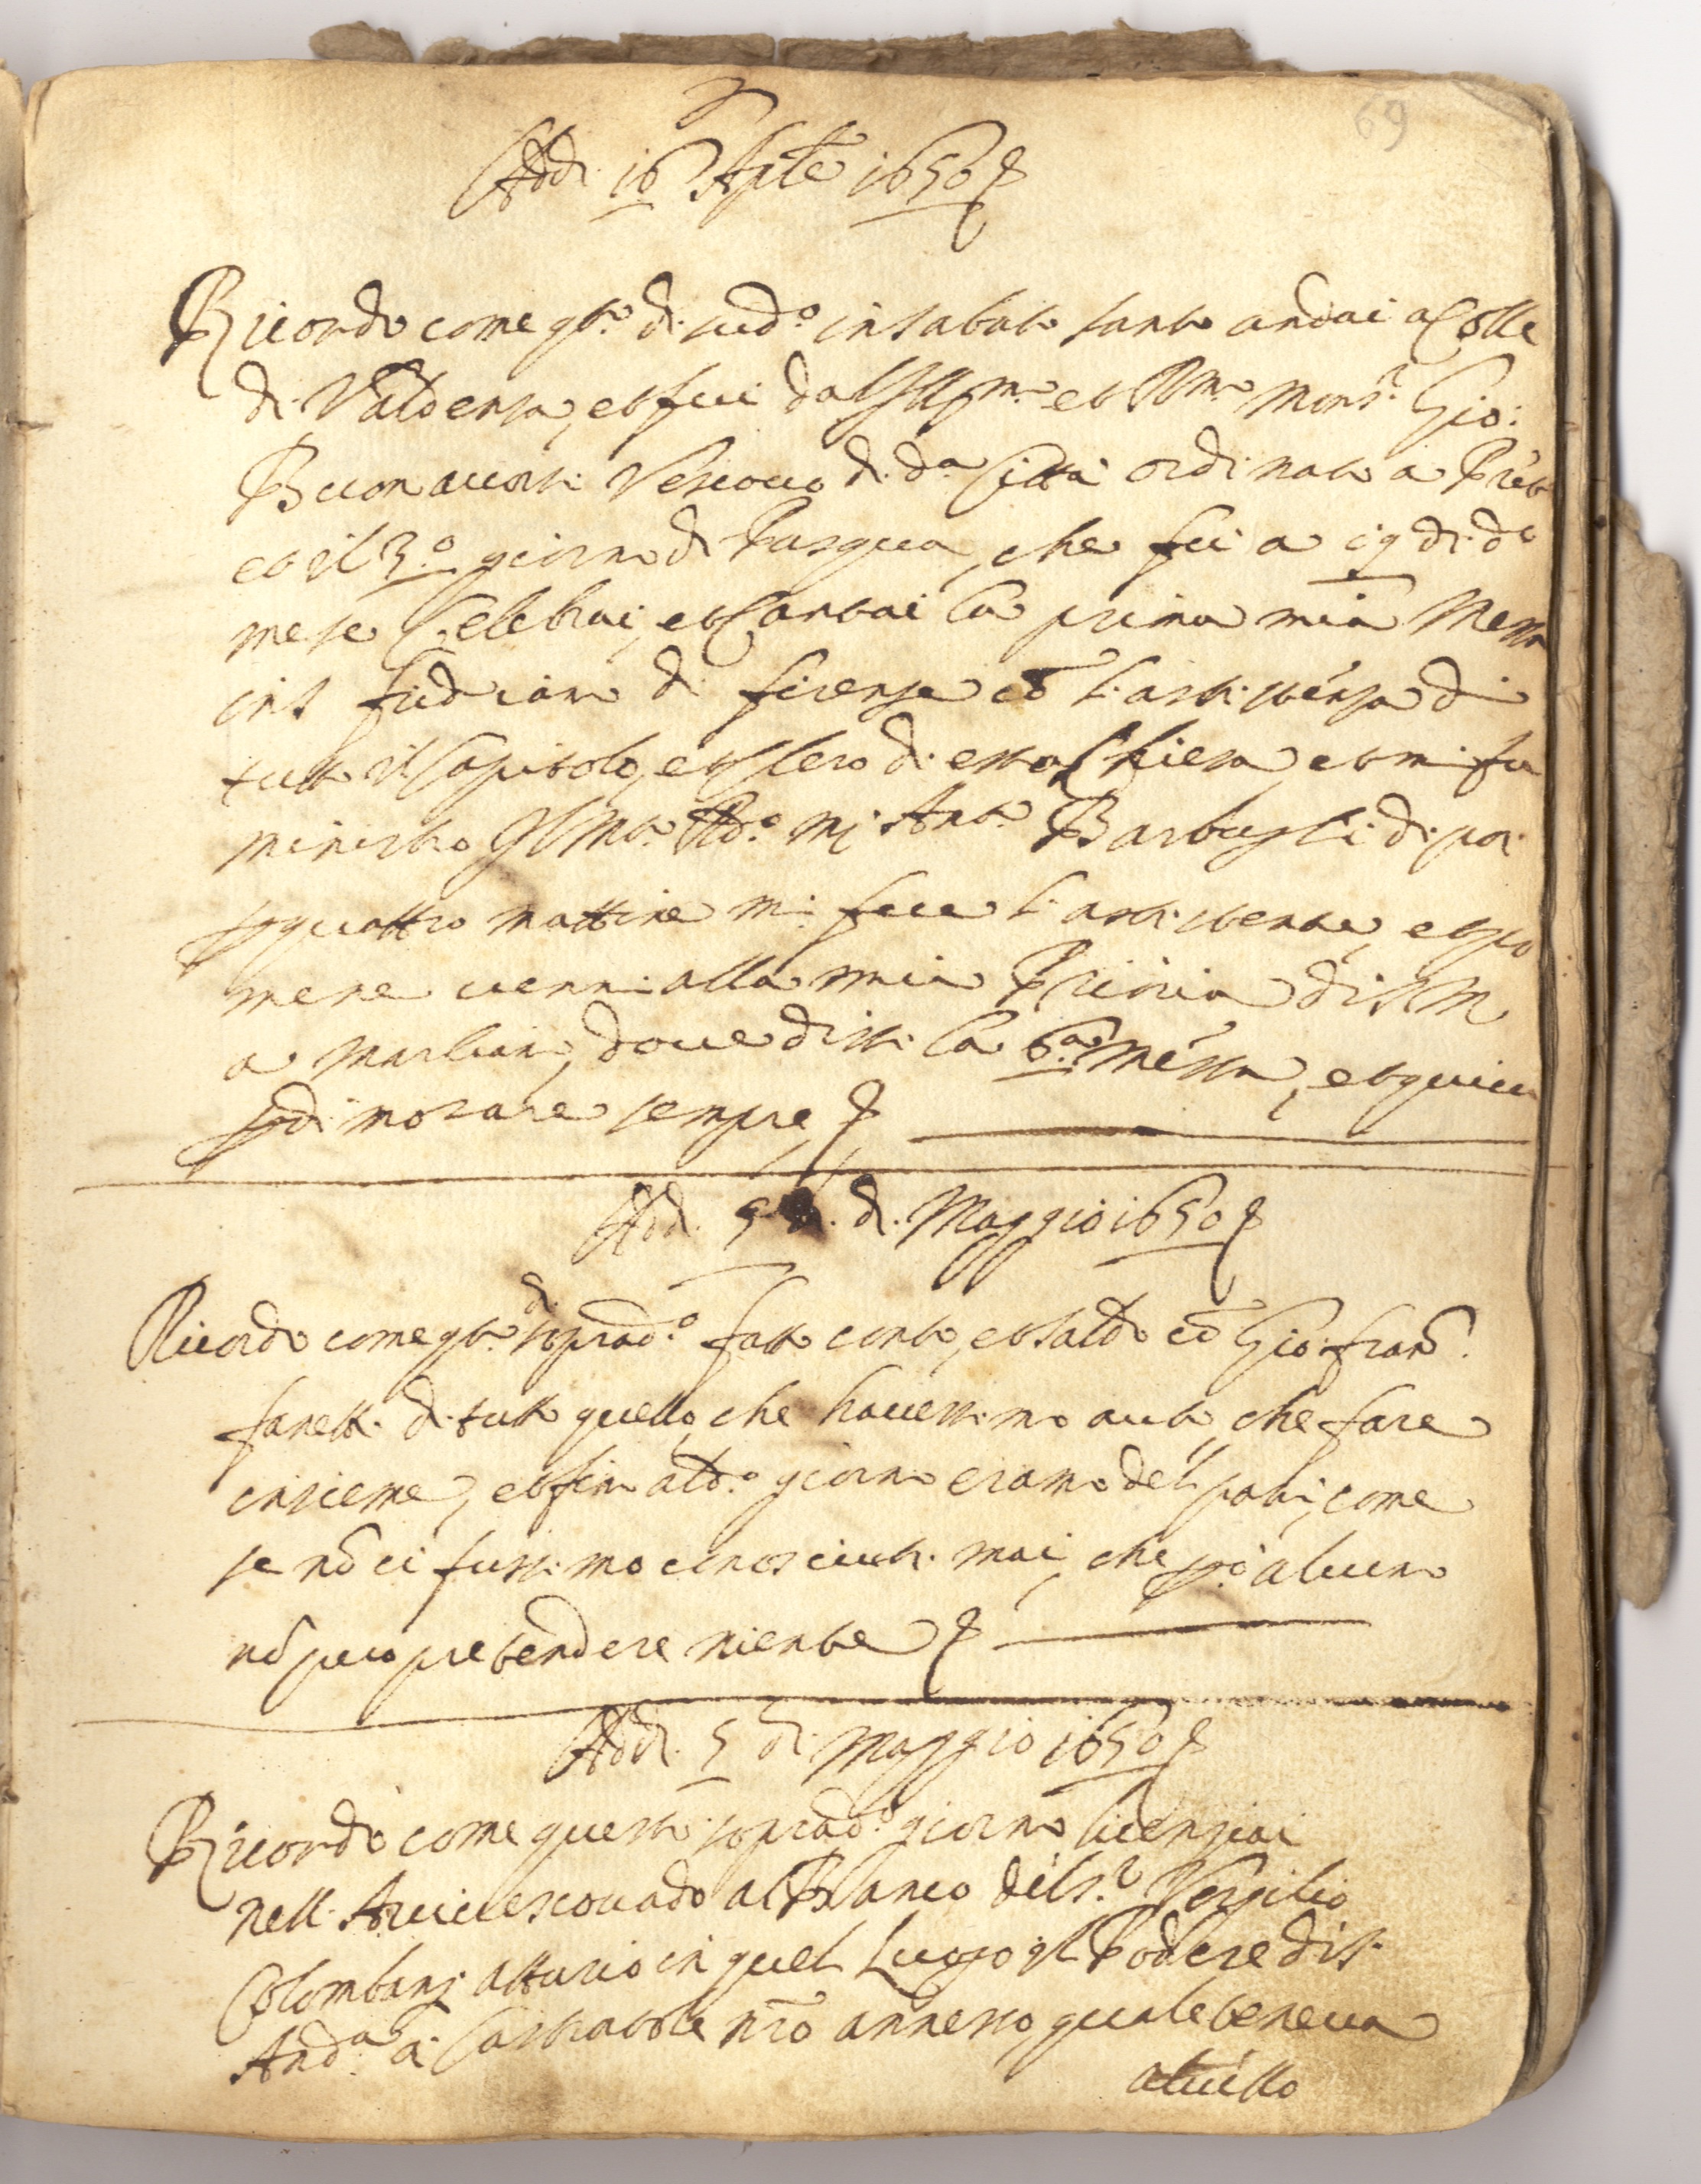 69
Addi 16 Aple 1650
Ricordo come qto. di sudo. in sabato santo andai a Colle
di Valdensa, et fui dal Illmo. et Rmo. Monsr. Gio:
Buonaccorsi Vescovo di da. Città ordinato a Prete
et il 3o. giorno di Pasqua, che fu a 19 di do
mese Celebrai, et Cantai la prima mia Messa
in S. fridiano di firenze cō l'assistenza di
tutto il Capitolo, et Clero di essa Chiesa, et mi fu
ministro Il Mto. Rdo. Mr. Anto. Barbugli di poi
p quattro mattine mi fece l'assistente, et poi
mene venni alla mia Prioria di S. M.
a Marliano, dove dissi la 6a. Messa, et quivi
p dimorare sempre
Addi. 5 di Maggio 1650
Ricordo come qto. di soprado. fatto conto, et saldo cō Gio: franco.
fanetti di tutto quello, che havessimo auto che fare
insieme, et fino al do. giorno eramo del pari, come
se nō ci fussimo conosciuti mai, che però alcuno
nō può pretendere niente
Addi. 5 di Maggio 1650
Ricordo come questo soprado. giorno licenziai
nell Arcivescovado al Banco del Sr. Vergilio
Colombani attuario in quel Luogo il Podere di S.
Anda. a Castratole nrō annesso, quale teneva
a livello